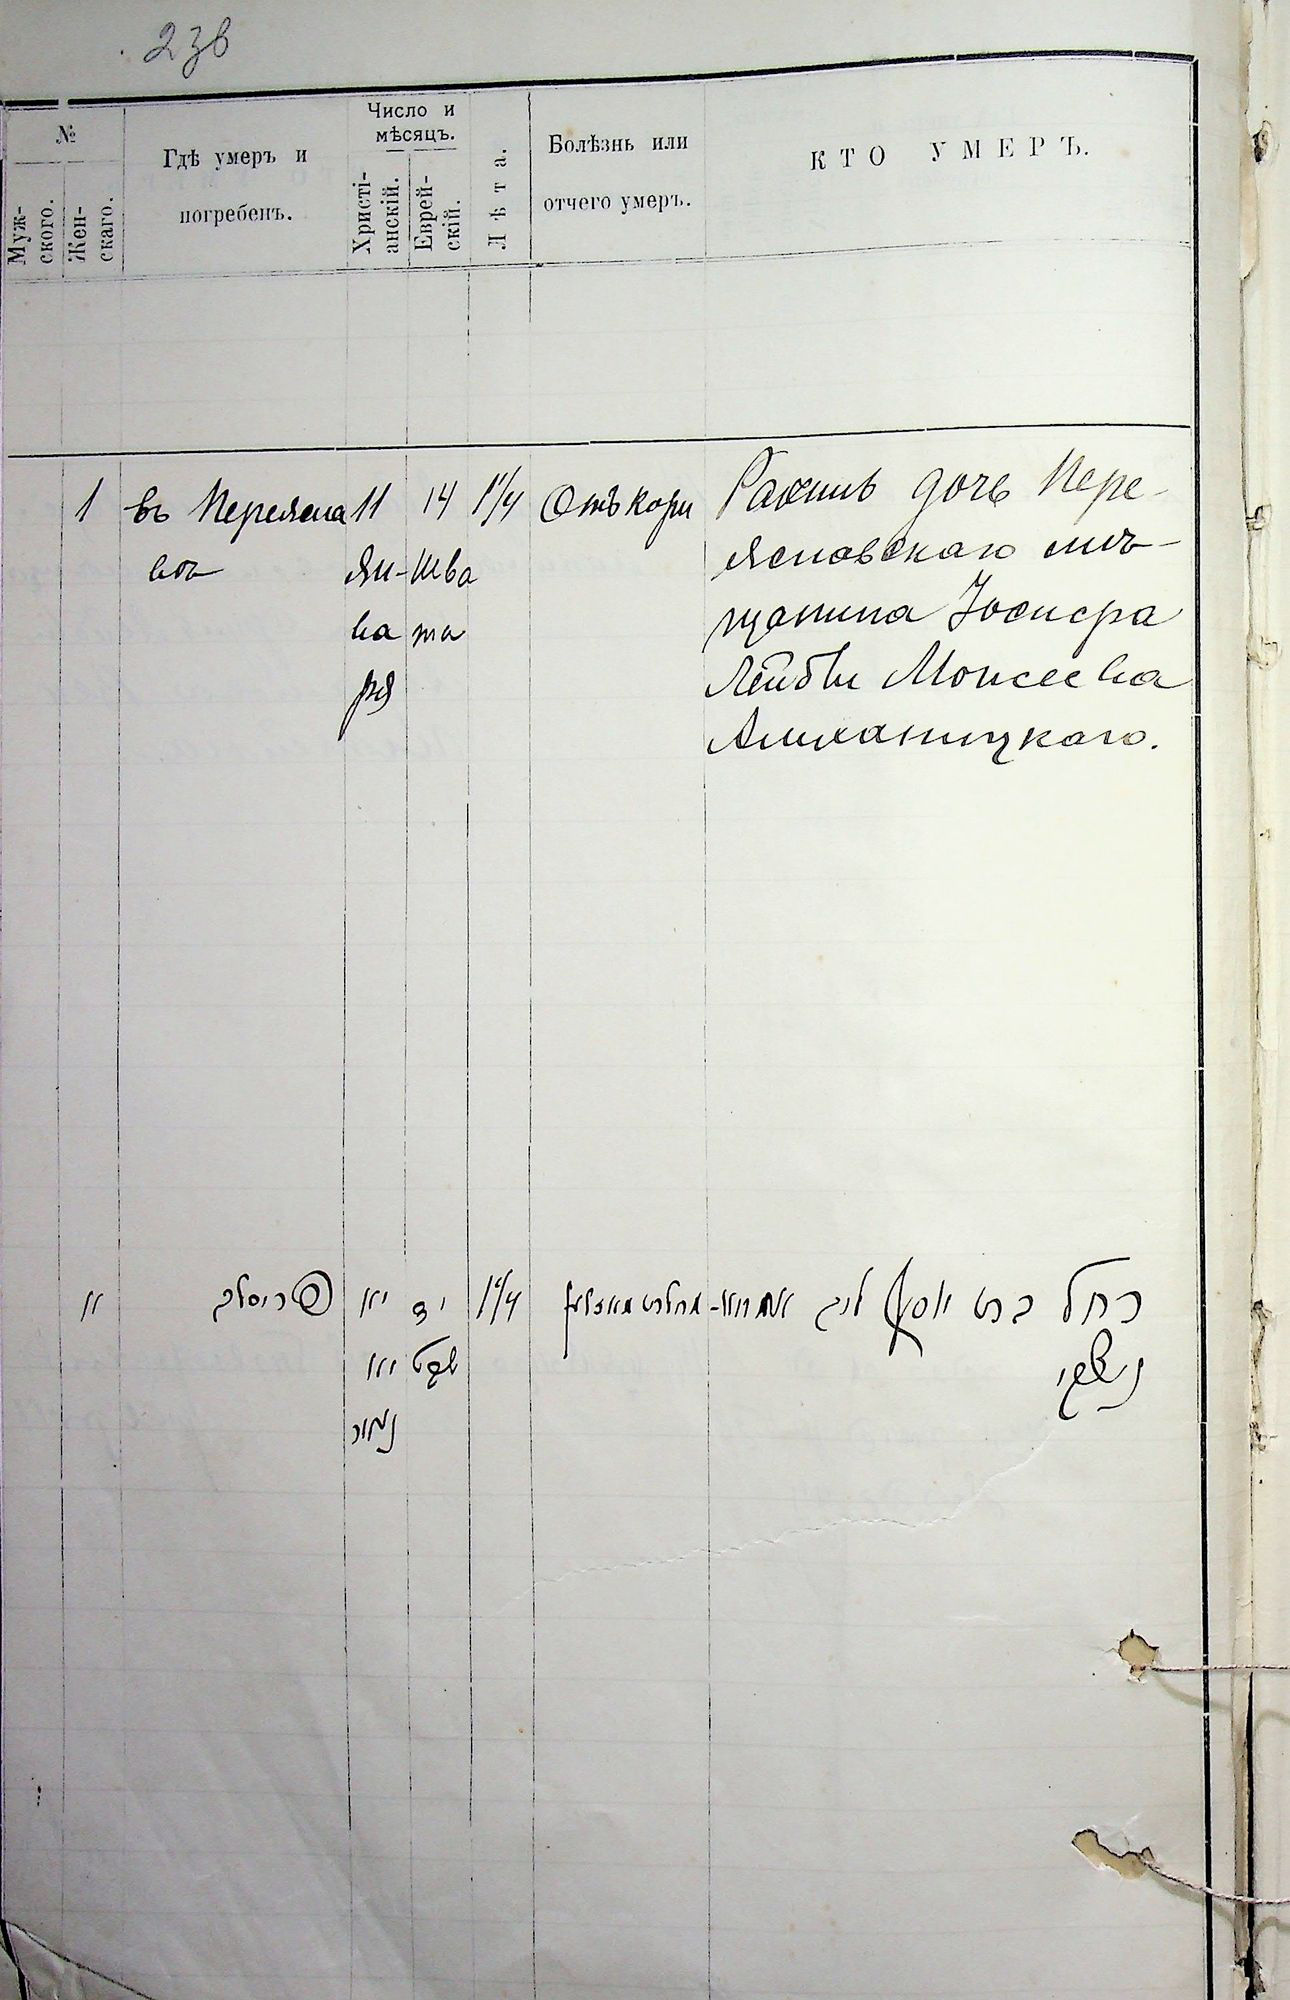 23в
№
Муж-
ского.
Жен-
скаго.
Гдѣ умеръ и
погребенъ.
Число и
мѣсяцъ.
Христі-
анскій.
Еврей-
скій.
Лѣта.
Болѣзнь или
отчего умеръ.
КТО УМЕРЪ.
1
въ Переясла
вѣ
11
Ян-
ва
ря
14
Шва
та
1 1/4
Отъ кори
Рахиль дочь Пере-
яславскаго мѣ-
щанина Іосифа
Лейбы Моисеева
רחל ברת יוסף ליב
1 1/4
יד
שבט
יא